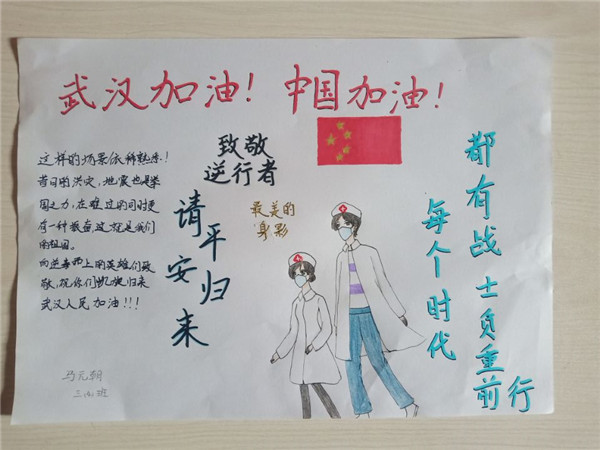 武汉加油！中国加油！
致敬
逆行者
最美的
身影
请平安归来
每个时代
都有战士负重前行
这样的场景依稀熟悉！
昔日的洪灾，地震也是举
国之力，在难过的同时更
有一种振奋，这就是我们
的祖国。
向逆行而上的英雄们致
敬，祝你们凯旋归来
武汉人民加油！！！
马元朝
三（4）班